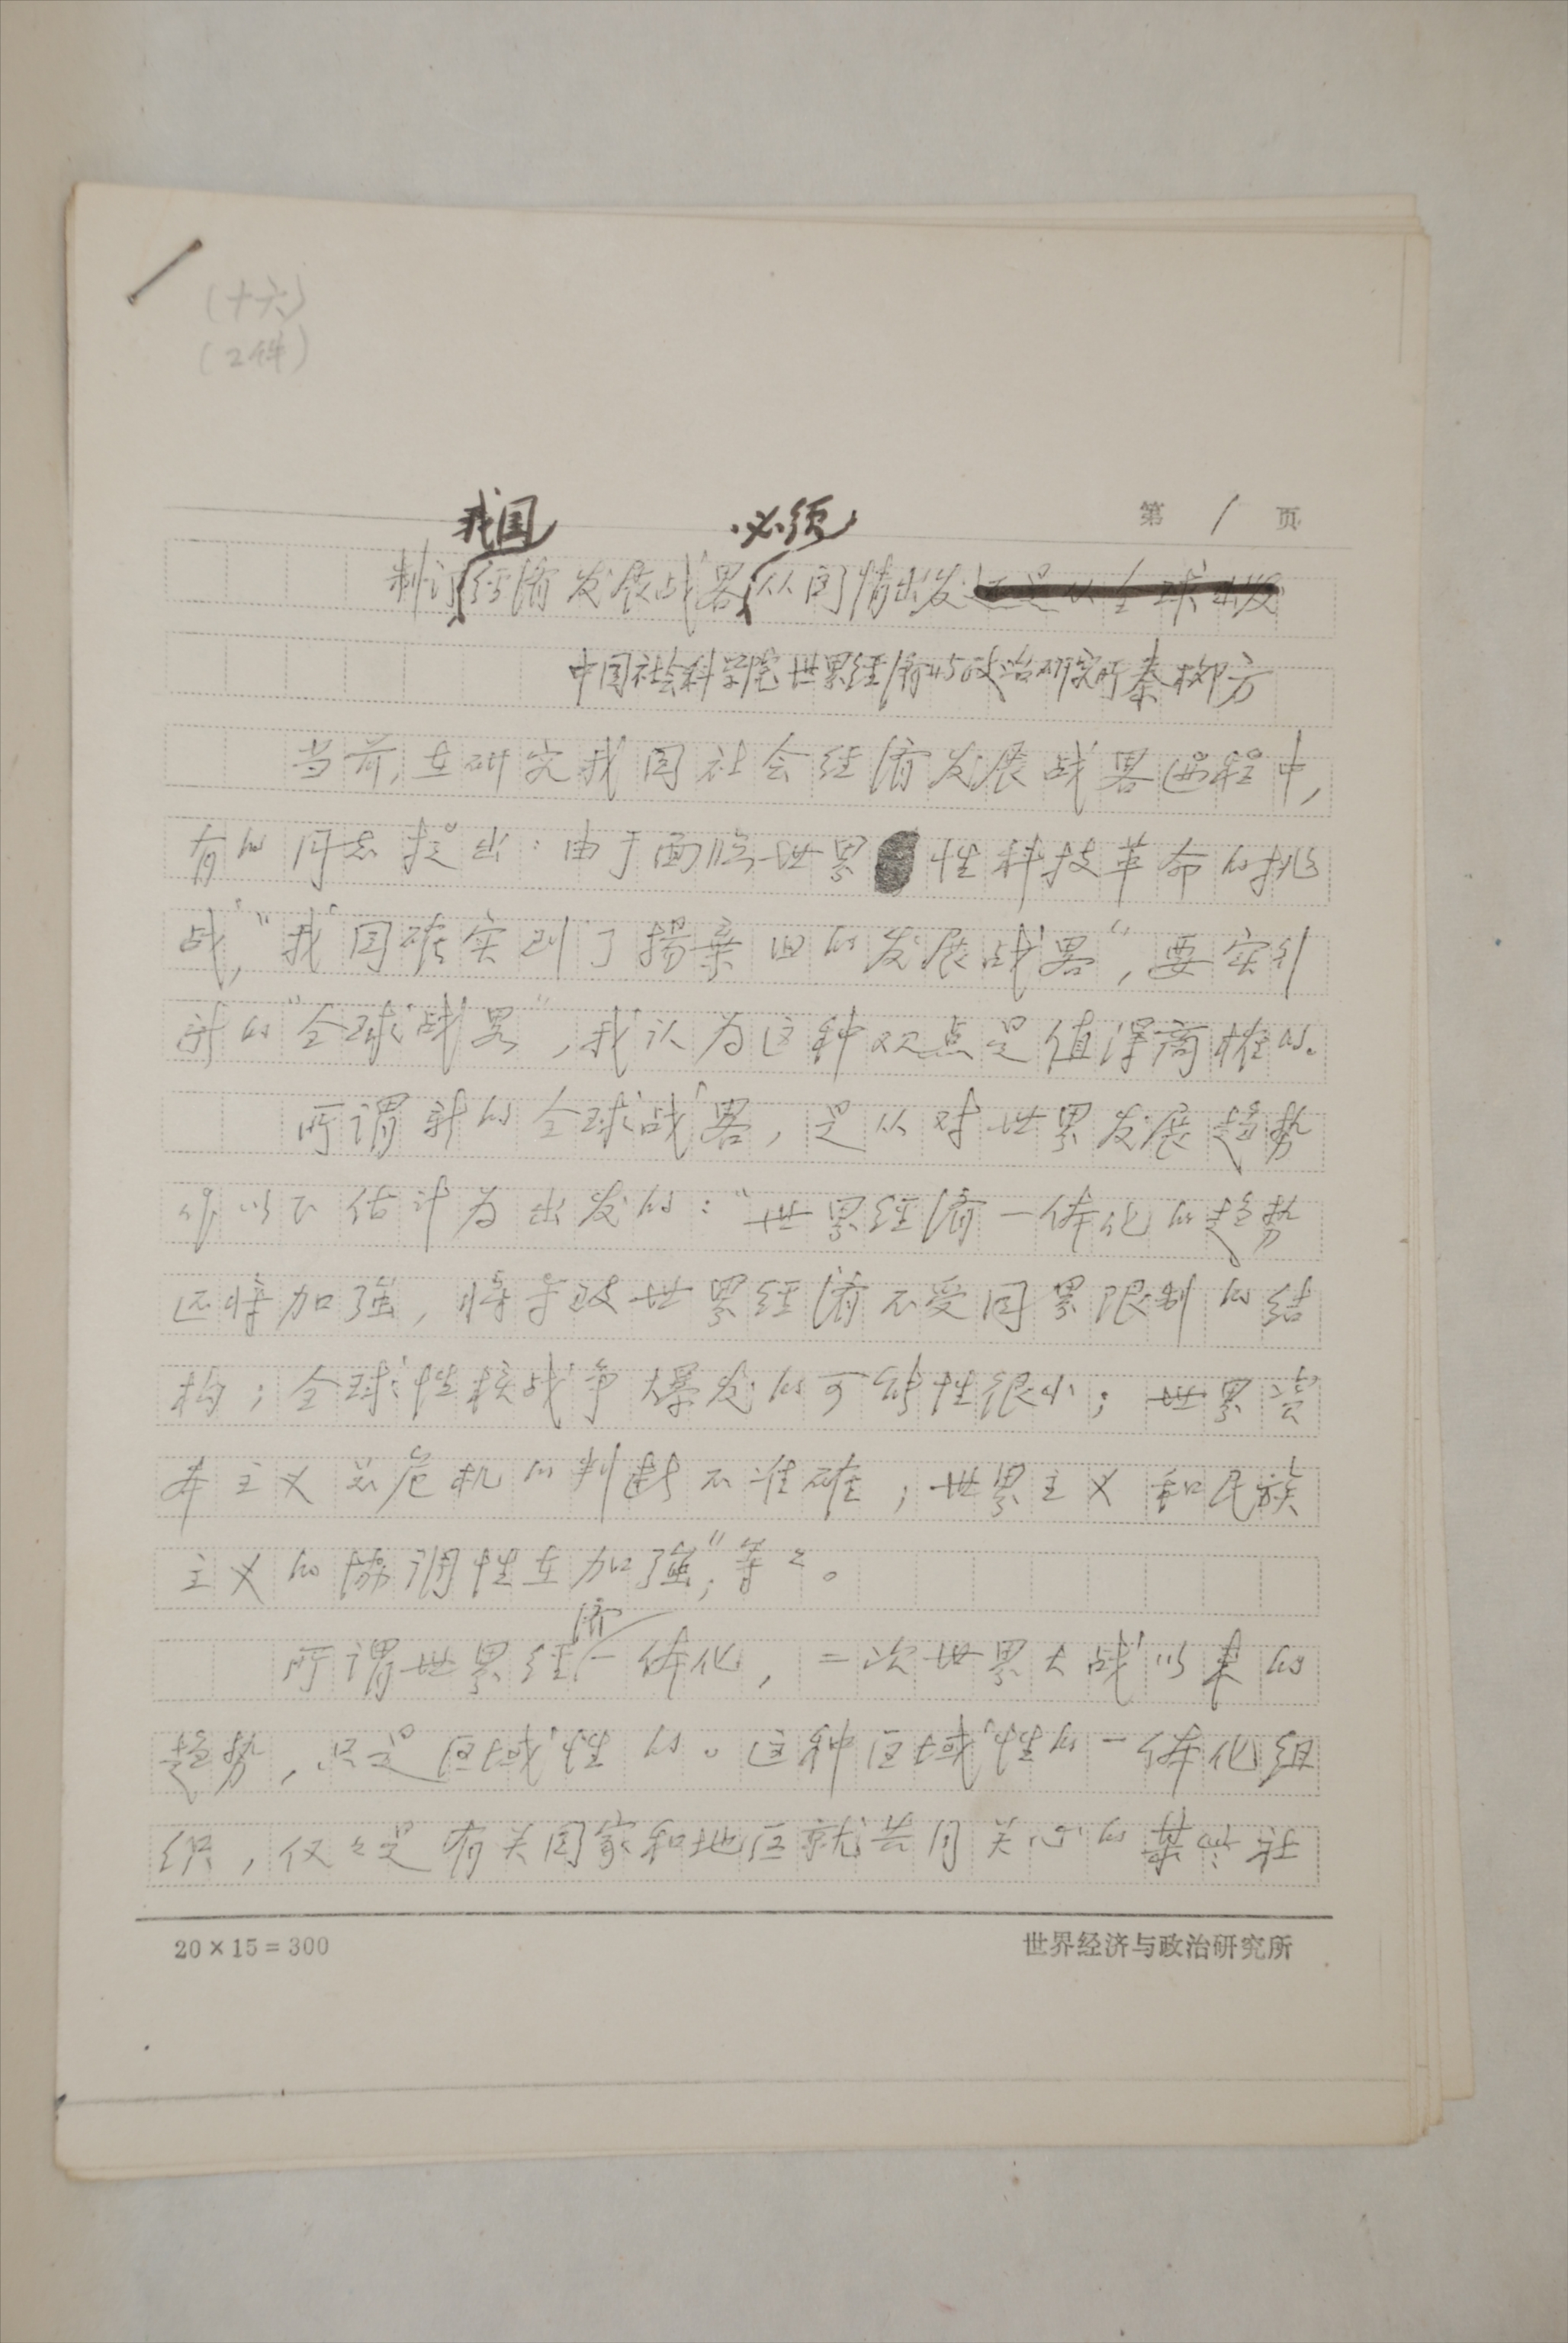 （十六）
（2件）
第 1 页
我国 必须
制订经济发展战略从国情出发还是从全球出发
中国社会科学院世界经济与政治研究所 秦柳方
当前，在研究我国社会经济发展战略过程中，
有的同志提出：由于面临世界性科技革命的挑
战，“我国确实到了揚棄旧的发展战略”，要实行
新的“全球战略”，我认为这种观点是值得商榷的。
所谓新的全球战略，是从对世界发展趋势
作以下估计为出发的：“世界经济一体化的趋势
还将加强，将导致世界经济不受国界限制的结
构；全球性核战争爆发的可能性很小；世界资
本主义总危机的判断不准确；世界主义和民族
主义的協调性在加强”，等々。
济
所谓世界经一体化，二次世界大战以来的
趋势，只是区域性的。这种区域性的一体化组
织，仅々是有关国家和地区就共同关心的某些社
20×15=300
世界经济与政治研究所